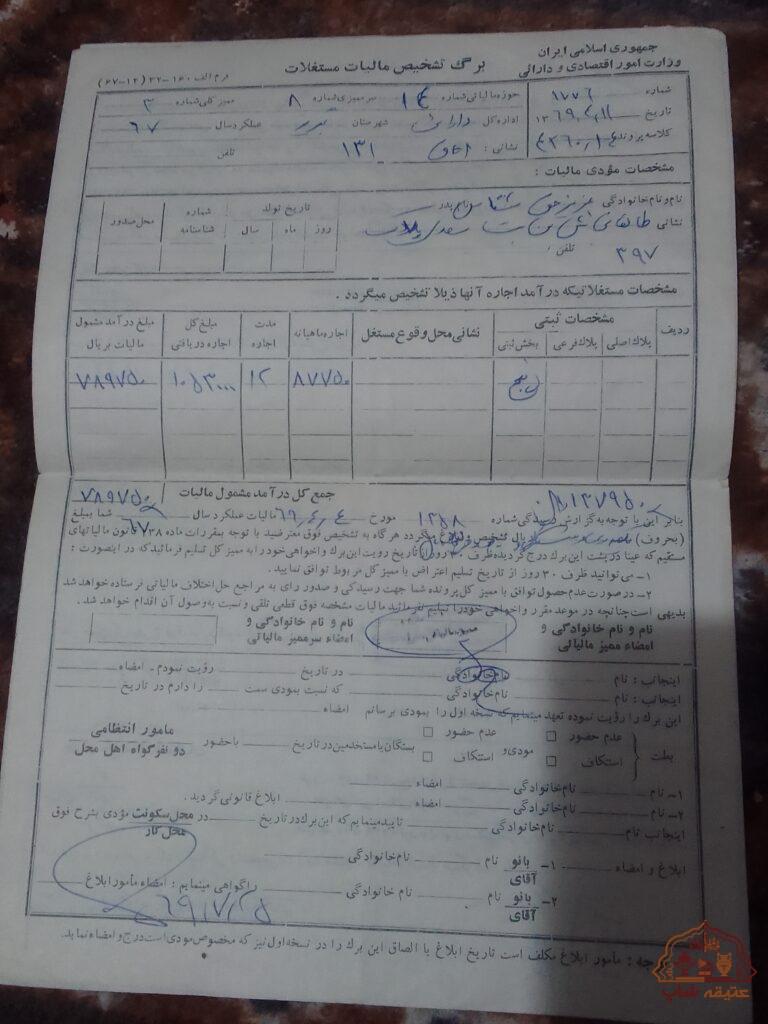 جمهوری اسلامی ایران
وزارت امور اقتصادی و دارائی
برگ تشخیص مالیات مستغلات
فرم الف ۱۶۰-۲۲ (۱۲-۶۷)
شماره ۱۷۷۶
تاریخ
کلاسه پرونده
حوزه مالیاتی شماره ۱۴ سرممیزی شماره ۸ ممیز کلی شماره ۳
اداره کل دارائی شهرستان تبریز عملکرد سال ۶۷
نشانی : ۱۳۱ تلفن
مشخصات مؤدی مالیات :
نام و نام خانوادگی نام پدر
نشانی
تلفن : ۳۹۷
تاریخ تولد شماره شناسنامه محل صدور
روز ماه سال
مشخصات مستغلاتیکه درآمد اجاره آنها ذیلا تشخیص میگردد .
ردیف مشخصات ثبتی نشانی محل وقوع مستغل اجاره ماهیانه مدت اجاره مبلغ کل اجاره دریافتی مبلغ درآمد مشمول مالیات بریال
پلاک اصلی پلاک فرعی بخش ثبتی
پنج ۸۷۷۵۰ ۱۲ ۱۰۵۳۰۰۰ ۷۸۹۷۵۰
جمع کل درآمد مشمول مالیات ۷۸۹۷۵۰
بنابر این با توجه به گزارش رسیدگی شماره ۱۲۵۸ مورخ ۶۹/۴/۴ مالیات عملکرد سال ۶۷ شما بمبلغ
(بحروف) ریال تشخیص و ابلاغ میگردد هرگاه به تشخیص فوق معترضید با توجه بمقررات ماده ۲۳۸ قانون مالیاتهای
مستقیم که عینا در پشت این برگ درج گردیده ظرف ۳۰ روز از تاریخ رویت این برگ واخواهی خود را به ممیز کل تسلیم فرمائید که در اینصورت :
۱- می توانید ظرف ۳۰ روز از تاریخ تسلیم اعتراض با ممیز کل مربوط توافق نمایید .
۲- در صورت عدم حصول توافق با ممیز کل پرونده شما جهت رسیدگی و صدور رای به مراجع حل اختلاف مالیاتی فرستاده خواهد شد
بدیهی است چنانچه در موعد مقرر واخواهی خود را تسلیم نفرمائید مالیات مشخصه فوق قطعی تلقی و نسبت به وصول آن اقدام خواهد شد .
نام و نام خانوادگی و امضاء ممیز مالیاتی
نام و نام خانوادگی و امضاء سرممیز مالیاتی
اینجانب : نام نام خانوادگی در تاریخ رؤیت نمودم - امضاء
اینجانب : نام نام خانوادگی که نسبت بمودی سمت را دارم در تاریخ
این برگ را رؤیت نموده تعهد مینمایم که نسخه اول را بمودی برسانم امضاء
بعلت عدم حضور مودی و عدم حضور بستگان یا مستخدمین در تاریخ با حضور مامور انتظامی
استنکاف استنکاف دو نفر گواه اهل محل
۱- نام نام خانوادگی امضاء
۲- نام نام خانوادگی امضاء ابلاغ قانونی گردید .
اینجانب نام نام خانوادگی تایید مینمایم که این برگ در تاریخ در محل سکونت مؤدی بشرح فوق
محل کار
ابلاغ و امضاء ۱- بانو آقای نام نام خانوادگی
۲- بانو آقای نام نام خانوادگی را گواهی مینمایم : امضاء مأمور ابلاغ
۶۹/۷/۲۵
مأمور ابلاغ مکلف است تاریخ ابلاغ یا الصاق این برگ را در نسخه اول نیز که مخصوص مودی است درج و امضاء نماید.
عتیقه شاپ